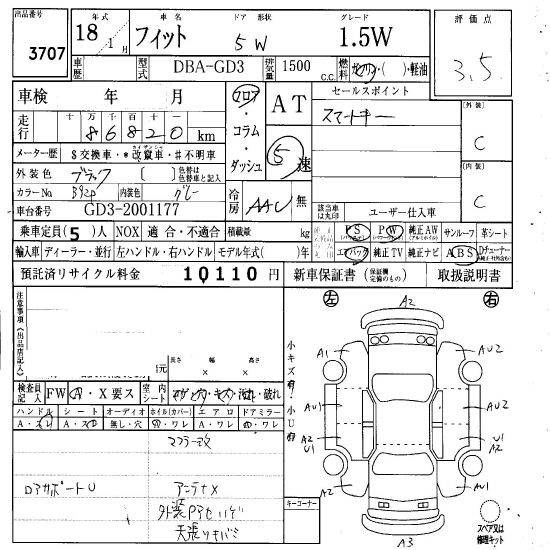 出品番号 3707
年式 18年 1月
車名 フィット
ドア 形状 5 W
グレード 1.5W
評価点 3.5
車歴
型式 DBA-GD3
排気量 1500 c.c.
燃料 ガソリン・( )・軽油
車検 年 月
フロア・コラム・ダッシュ
AT
セールスポイント
スマートキー
外装 C
走行 十万千百十一 86820 km
メーター歴 $交換車・*改竄車・#不明車
5速
外装色 ブラック ( ) 色替は色替車と記入
内装 C
カラーNo B92P 内装色 グレー
冷房 AAC 無
該当車は丸印
ユーザー仕入車
車台番号 GD3-2001177
乗車定員(5)人 NOX 適合・不適合 積載量 kg
PS PW 純正AW サンルーフ 革シート
輸入車 ディーラー・並行 左ハンドル・右ハンドル モデル年式( )年
エアバック 純正TV 純正ナビ ABS Dチューナー
預託済リサイクル料金 10110円
新車保証書 (保証欄完備のもの) 取扱説明書
注意事項(出品店記入)
左 右
A2
小キズ有!
小U有!
A1 AU2
AU1 AU2
A2 U1 U1 A2
A2 AU1
A3
円
長さ × 幅 × 高さ
検査員記入 FW A・X要ス 室内シート
ハンドル シート オーディオ ホイル(カバー) エアロ ドアミラー
A・スレ A・スレ 無し・穴 ワレ ワレ ワレ
マフラー改
ロアサポートU アンテナX
キーコーナー
スペア又は修理キット